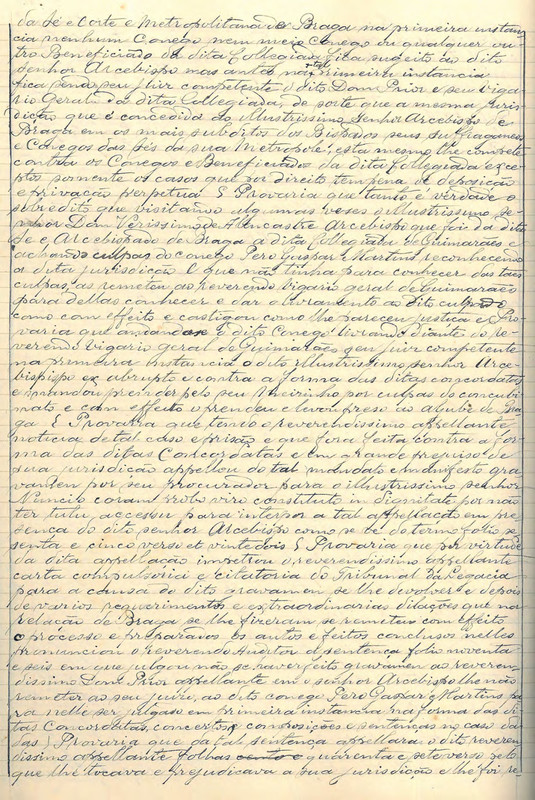 da Sé e Corte e Metropolitana de Braga na primeira instan
cia nenhum Conego nem meio Conego ou qualquer ou
tro Beneficiado da dita Collegiada fica sugeito ao dito
senhor Arcebispo mas antes na primeira instancia
fica sendo seu Juiz competente o dito Dom Prior e seu viga
rio Geral da dita Collegiada, de sorte que a mesma juris
dicção que é concedida ao illustrissimo senhor Arcebispo de
Braga em os mais subditos dos Bispados seus suffraganeos
e Conegos das sés da sua Metropole: esta mesma lhe compete
contra os Conegos e Beneficiados da dita Collegiada exce
ptos somente os casos que por direito tem pena de deposição
e privação perpetua § Provaria que tanto é verdade o
sobredito que visitando algumas veses o illustrissimo se
nhor Dom Verissimo de Alencastre Arcebispo que foi da dita
Sé e Arcebispado de Braga a dita Collegiada de Guimarães e
achando culpas do conego Pero Gaspar Martins reconhecendo
a dita jurisdicção e que não tinha para conhecer das taes
culpas, as remeteu ao reverendo vigario geral de Guimarães
para dellas conhecer e dar o livramento ao dito culpado e
como com effeito e castigou como lhe pareceu justiça § Pro
varia que andando-se o dito Conego livrando diante do re
verendo vigario geral de Guimarães seu juiz competente
na primeira instancia o dito illustrissimo senhor Arce
bispispo ex abrupto e contra a forma das ditas concordatas
e mandou prender pelo seu Meirinho por culpas de concubi
nato e com effeito o prendeu e levou preso ao aljube de Bra
ga § Provaria que tendo o reverendissimo appellante
noticia de tal caso e prisão e que fora feita contra a for
ma das ditas Concordatas e em grande prejuiso de
sua jurisdicção appellou do tal mandado e manifesto gra
vamen por seu procurador para o illustrissimo senhor
Nuncio coram probo viro constituto in dignitate por não
ter tutu accessu para interpor a tal appellação em pre
sença do dito senhor Arcebispo como se vê do termo folio se
senta e cinco verso et vinte dois § Provaria que por virtude
da dita appellação impetrou o reverendissimo appellante
carta compulsoria e citatoria do Tribunal da Legacia
para a causa do dito gravamen se lhe devolver e depois
de varios requerimentos e extraordinarias dilações que na
relação de Braga se lhe fizeram se remeteu com effeito
o processo e preparados os autos e feitos conclusos nelles
pronunciou o reverendo Auditor a sentença folio noventa
e seis em que julgou não se haver feito gravamen ao reveren
dissimo Dom Prior appellante em o senhor Arcebispo lhe não
remeter ao seu juizo, ao dito conego Pero Gaspar e Martins pa
ra nelle ser julgado em primeira instancia na forma das di
tas Concordatas, concertos e composições e sentenças no caso da
das § Provaria que da tal sentença appellara o dito reveren
dissimo appellante folhas cento e quarenta e sete verso pelo
que lhe tocava e prejudicava a sua jurisdicção e lhe foi re